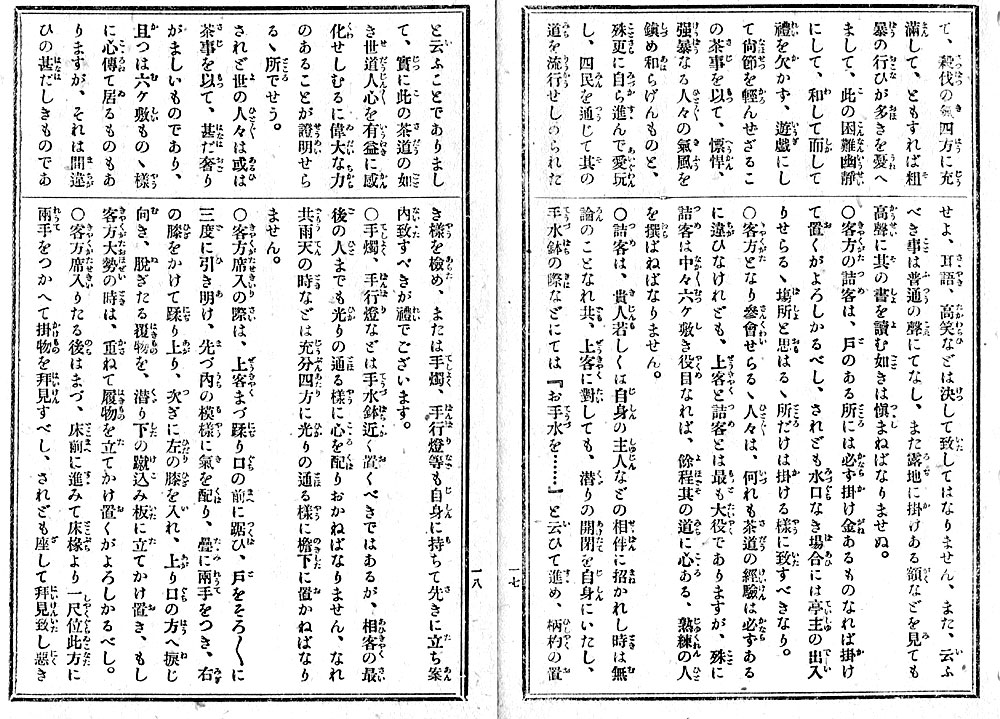 て、殺伐の氣四方に充
滿して、ともすれば粗
暴の行ひが多きを憂へ
まして、此の困難幽靜
にして、和して而して
禮を欠かす、遊戯にし
て尙節を輕んせざるこ
の茶事を以て、慓悍、
强暴なる人々の氣風を
鎭め和らげんものと、
殊更に自ら進んで愛玩
し、四民を通じて其の
道を流行せしめられた
せよ、耳語、高笑などは決して致してはなりません、また、云ふ
べき事は普通の聲にてなし、また露地に掛けある額などを見ても
高聲に其の書を讀む如きは愼まねばなりませぬ。
〇客方の詰客は、戶のある所には必ず掛け金あるものなれば掛け
て置くがよろしかるべし、されども水口なき場合には亭主の出入
りせらるゝ塲所と思はるゝ所だけは掛ける樣に致すべきなり。
〇客方となり參會せらるゝ人々は、何れも茶道の經驗は必ずある
に違ひなけれども、上客と詰客とは最も大役でありますが、殊に
詰客は中々六ケ敷き役目なれば、餘程其の道に心ある、熟練の人
を撰ばねばなりません。
〇詰客は、貴人若しくは自身の主人などの相伴に招かれし時は無
論のことなれ共、上客に對しても、潜りの開閉を自身にいたし、
手水鉢の際などにては『お手水を……』と云ひて進め、柄杓の置
一七
と云ふことでありまし
て、實に此の茶道の如
き世道人心を有益に感
化せしむるに偉大な力
のあることが證明せら
るゝ所でせう。
されど世の人々は或は
茶事を以て、甚だ奢り
がましいものであり、
且つは六ケ敷ものゝ樣
に心傳て居るものもあ
りますが、それは間違
ひの甚だしきものであ
き樣を檢め、または手燭、手行燈等も自身に持ちて先きに立ち案
內致すべきが禮でございます。
〇手燭、手行燈などは手水鉢近く置くべきではあるが、相客の最
後の人までも光りの通る樣に心を配りおかねばなりません、なれ
共雨天の時などは充分四方に光りの通る樣に檐下に置かねばなり
ません。
〇客方席入の際は、上客まづ躙り口の前に踞ひ、戶をそろ〳〵に
三度に引き明け、先づ內の模樣に氣を配り、疊に兩手をつき、右
の膝をかけて躙り上り、次ぎに左の膝を入れ、上り口の方へ捩じ
向き、脫ぎたる履物を、潜り下の蹴込み板に立てかけ置き、もし
客方大勢の時は、重ねて履物を立てかけ置くがよろしかるべし。
〇客方席入りたる後はまづ、床前に進みて床椽より一尺位此方に
兩手をつかへて掛物を拜見すべし、されども座して拜見致し惡き
一八